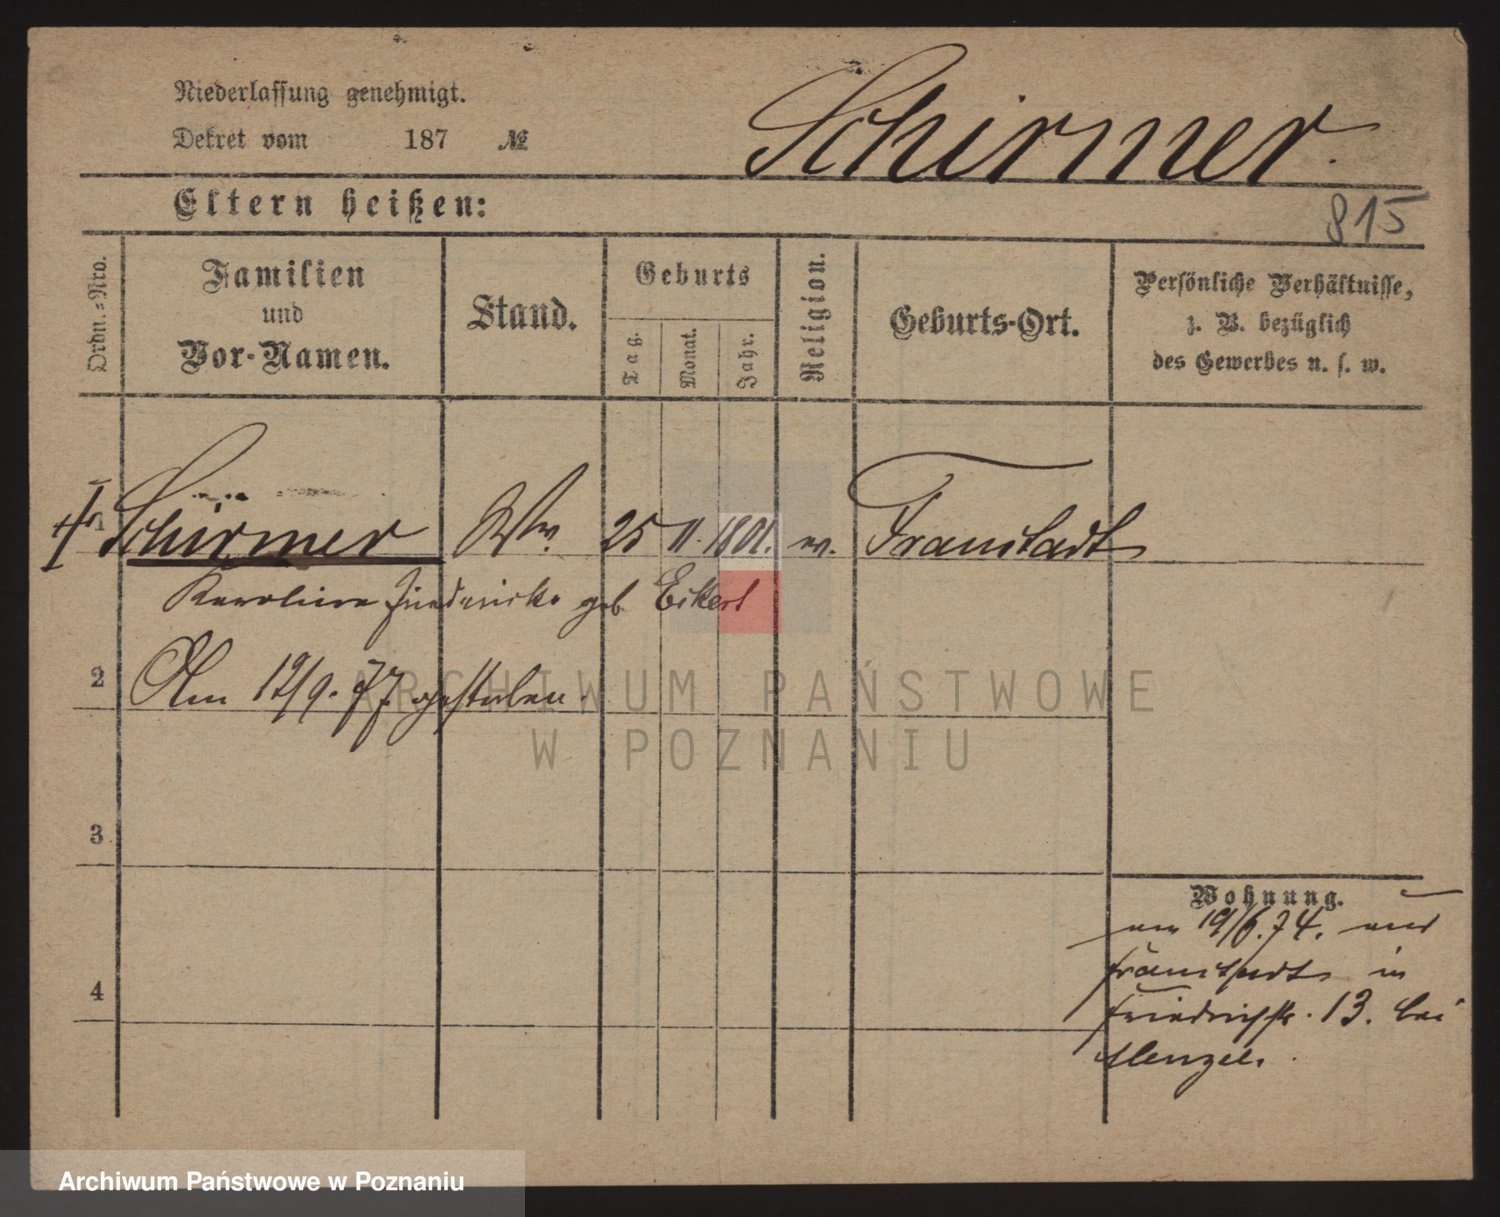 Niederlassung genehmigt.
Dekret vom 187 №
Schirmer.
Eltern heißen:
815
Ordn.=Nro.
Familien
und
Vor-Namen.
Stand.
Geburts
Tag.
Monat.
Jahr.
Religion.
Geburts-Ort.
Persönliche Verhältnisse,
z. B. bezüglich
des Gewerbes u. s. w.
1 Schirmer Ww. 25 11. 1801. ev. Fraustadt
Karoline Friedericke geb Eckert
2 Am 12/9. 77 gestorben.
3
4
Wohnung.
am 19/6. 74. aus
Fraustadt in
Friedrichstr. 13. bei
Menzel.
ARCHIWUM PAŃSTWOWE
W POZNANIU
Archiwum Państwowe w Poznaniu